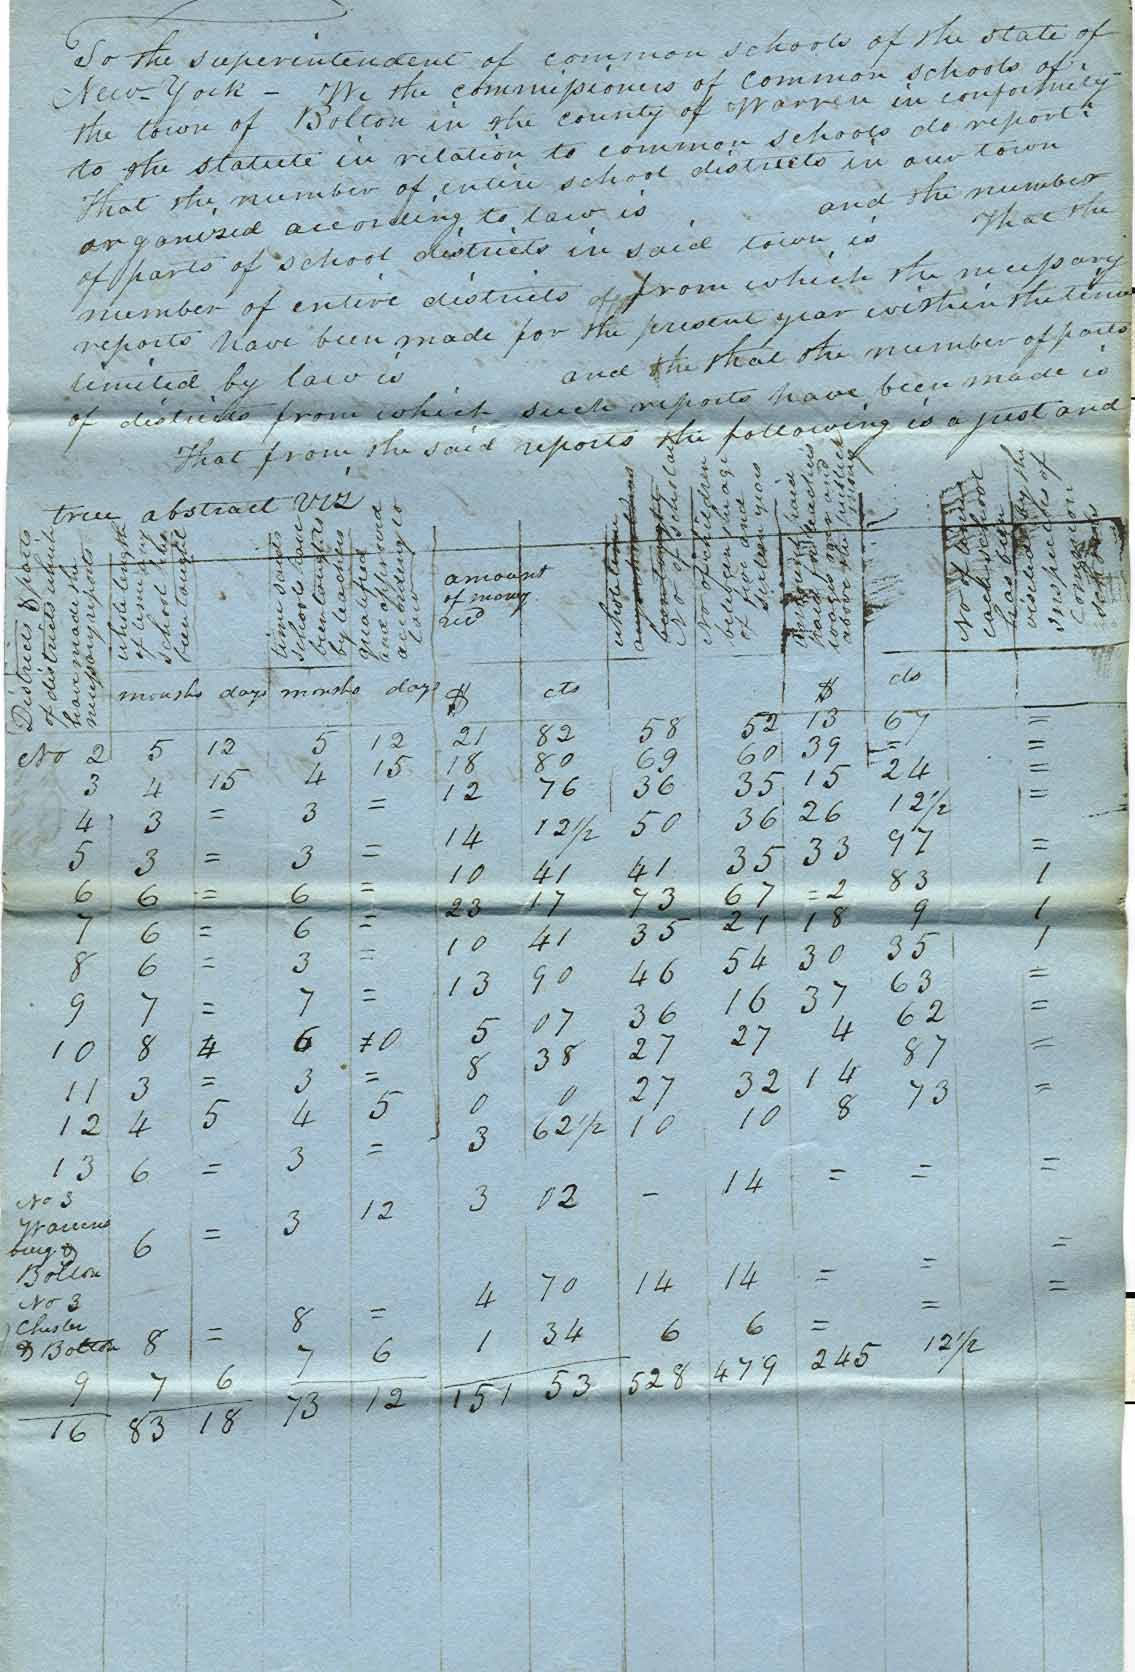 To the superintendent of common schools of the state of
New-York - We the commissioners of common schools of
the town of Bolton in the county of Warren in conformity
to the statute in relation to common schools do report:
that the number of entire school districts in our town
organized according to law is and the number
of parts of school districts in said town is That the
number of entire districts from which the necessary
reports have been made for the present year within the time
limited by law is and the that the number of parts
of districts from which such reports have been made is
That from the said reports the following is a just and
true abstract VIZ
Districts & parts
of districts which
have made the
necessary reports
whole length
of time any
school has
been taught
time said
schools have
been taught
by teachers
qualified
and approved
according to
law
amount
of mony
recd
whole time
been taught
No of scholars
No of children
between the age
of five and
sixteen years
amount paid
for teachers
wages over and
above the public
mony
No of times
each school
has been
visited by the
inspectors of
common
schools
months days months days $ cts $ cts
No 2 5 12 5 12 21 82 58 52 13 67 =
3 4 15 4 15 18 80 69 60 39 = =
4 3 = 3 = 12 76 36 35 15 24 =
5 3 = 3 = 14 12½ 50 36 26 12½ =
6 6 = 6 = 10 41 41 35 33 97 =
7 6 = 6 = 23 17 73 67 =2 83 1
8 6 = 3 = 10 41 35 21 18 9 1
9 7 = 7 = 13 90 46 54 30 35 1
10 8 4 6 10 5 07 36 16 37 63 =
11 3 = 3 = 8 38 27 27 4 62 =
12 4 5 4 5 0 0 27 32 14 87 =
13 6 = 3 = 3 62½ 10 10 8 73 =
No 3
Warrens
burg &
Bolton 6 = 3 12 3 02 - 14 = = =
No 3
Chester
& Bolton 8 = 8 = 4 70 14 14 = = =
9 7 6 7 6 1 34 6 6 = = =
16 83 18 73 12 151 53 528 479 245 12½